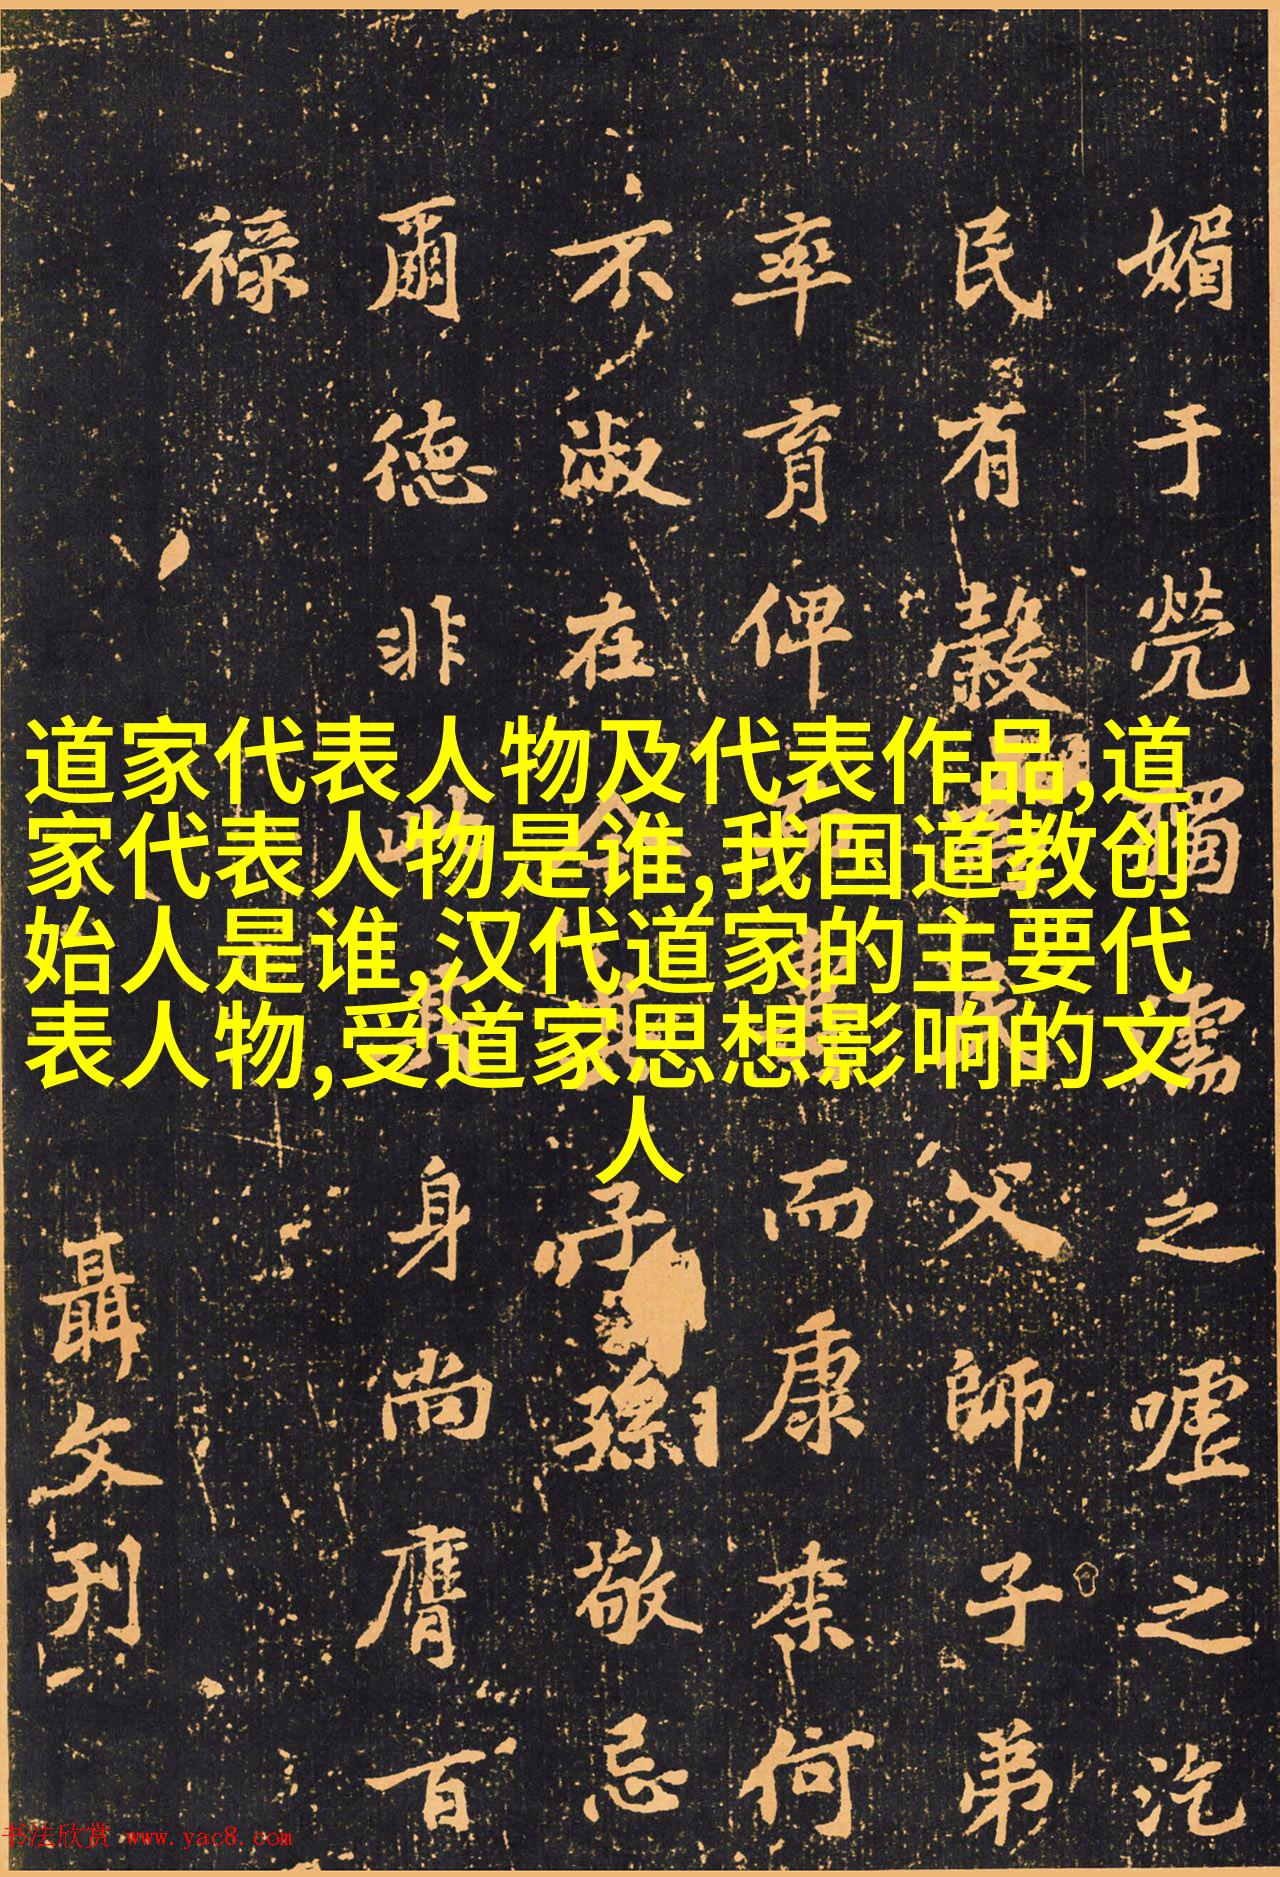 道家代表人物及代表作品,道
家代表人物是谁,我国道教创
始人是谁,汉代道家的主要代
表人物,受道家思想影响的文
人
媚于茕獨孺之嘘之汔
民有穀父師子弟
率育俾而康来何
不淑在子孫敬忌
爾德非此身尚膺百
禄
聶文刊
书法欣赏 www.yac8.com